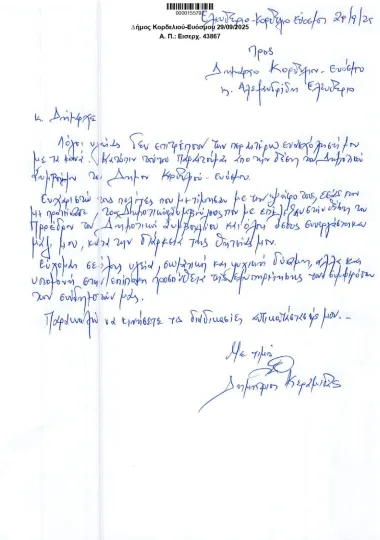 0000155709
Δήμος Κορδελιού-Ευόσμου 29/09/2025
Α. Π.: Εισερχ. 43867
Ελευθέριο-Κορδελιό Εύοσμο 29/9/25
Προς
Δήμαρχο Κορδελιού-Ευόσμου
κ. Αλεξανδρίδη Ελευθέριο
κ. Δήμαρχε
Λόγοι υγείας δεν επιτρέπουν την περαιτέρω ενασχόλησή μου
με τα κοινά. Κατόπιν τούτου παραιτούμαι από την θέση του Δημοτικού
Συμβούλου του Δήμου Κορδελιού-Ευόσμου.
Ευχαριστώ τους πολίτες που με τίμησαν με την ψήφο τους, εσάς που
με προτείνατε, τους Δημοτικούς συμβούλους που με επέλεξαν στην θέση του
Προέδρου του Δημοτικού Συμβουλίου και όλους όσους συνεργάστηκαν
μαζί μου, κατά την διάρκεια της θητείας μου.
Εύχομαι σε όλους υγεία, σωματική και ψυχική δύναμη, αλλά και
υπομονή στην επίπονη προσπάθεια της εξυπηρέτησης των συμφερόντων
των συνδημοτών μας.
Παρακαλώ να κινήσετε τις διαδικασίες αντικατάστασής μου.
Με τιμή
Δημήτριος